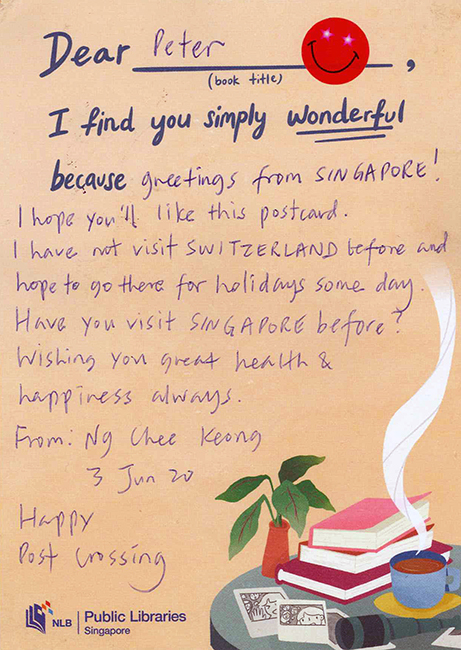 Dear Peter,
(book title)
I find you simply wonderful
because greetings from SINGAPORE!
I hope you'll like this postcard.
I have not visit SWITZERLAND before and
hope to go there for holidays some day.
Have you visit SINGAPORE before?
Wishing you great health &
happiness always.
From: Ng Chee Keong
3 Jun 20
Happy
Post Crossing
NLB Public Libraries
Singapore